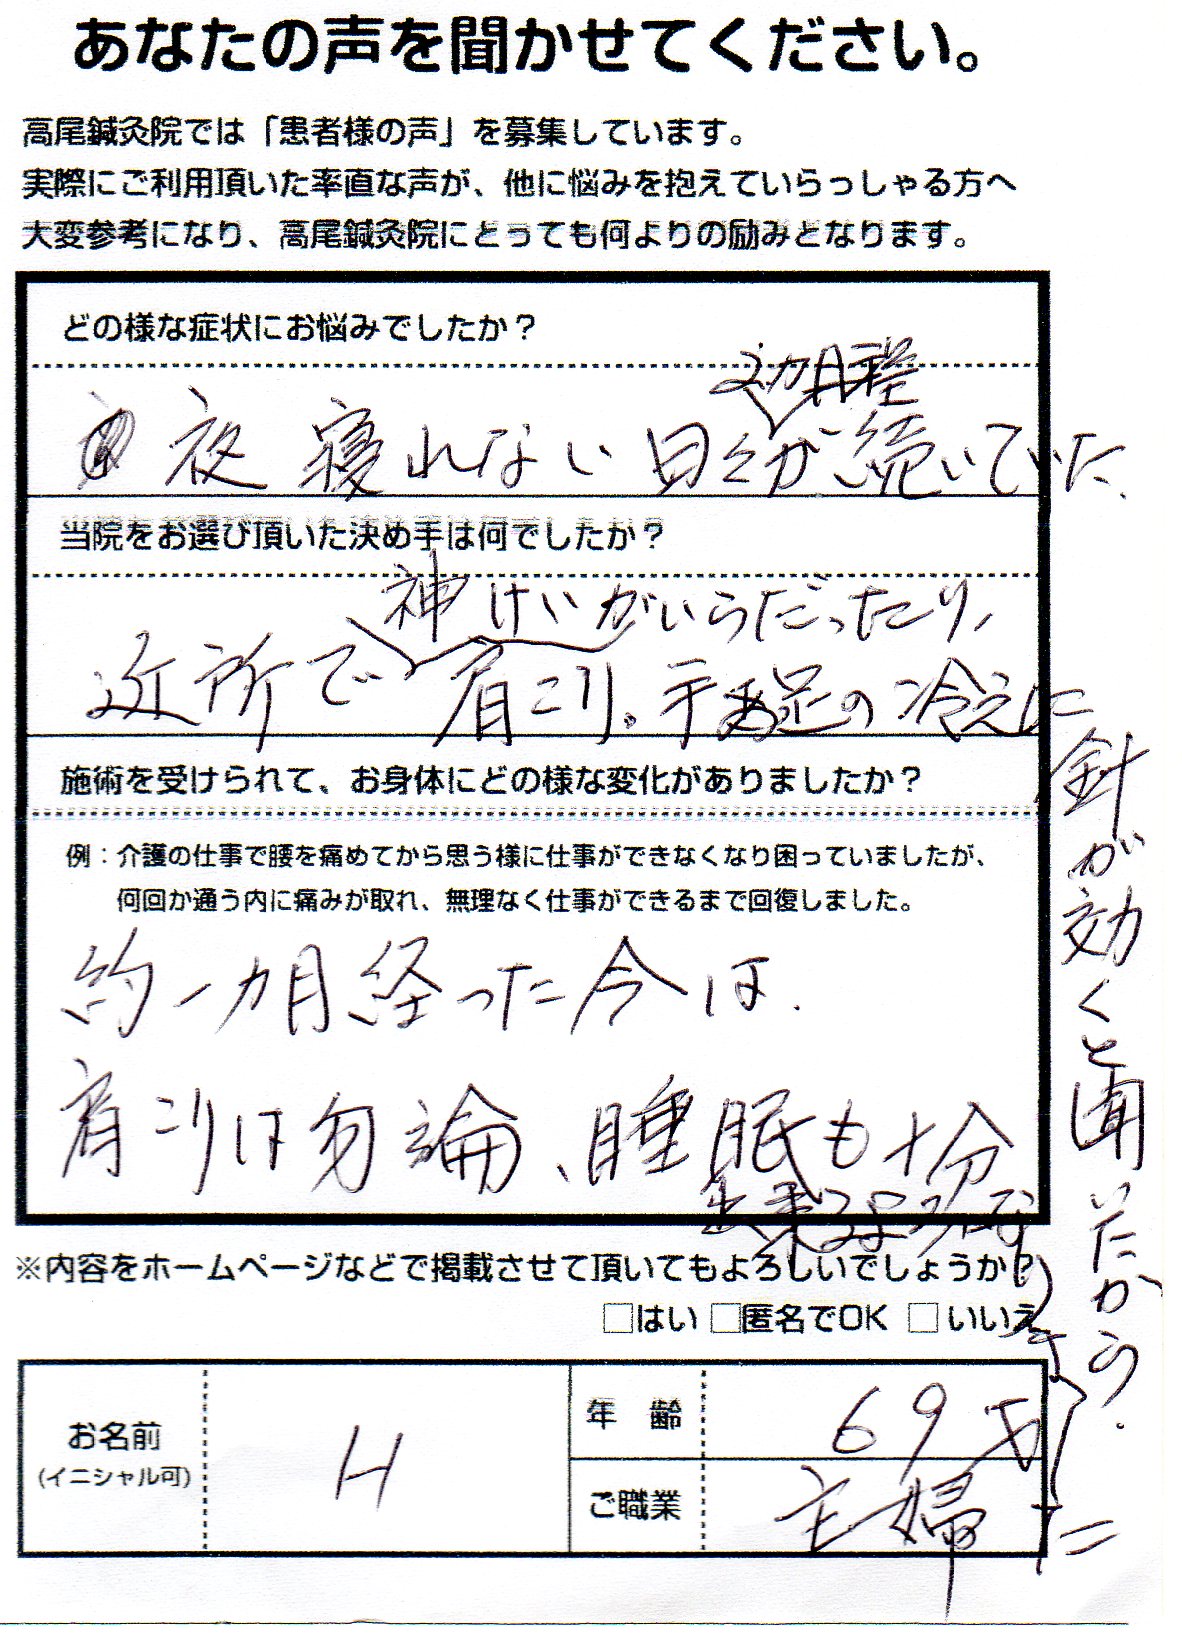 あなたの声を聞かせてください。
高尾鍼灸院では「患者様の声」を募集しています。
実際にご利用頂いた率直な声が、他に悩みを抱えていらっしゃる方へ
大変参考になり、高尾鍼灸院にとっても何よりの励みとなります。
どの様な症状にお悩みでしたか?
夜寝れない日々が2カ月程続いていた、
当院をお選び頂いた決め手は何でしたか?
近所で神けいがいらだったり、肩こり。手足の冷えに
針が効くと聞いたから.
施術を受けられて、お身体にどの様な変化がありましたか?
例:介護の仕事で腰を痛めてから思う様に仕事ができなくなり困っていましたが、
何回か通う内に痛みが取れ、無理なく仕事ができるまで回復しました。
約一カ月経った今は、
肩こりは勿論、睡眠も十分
出来るようになりました
※内容をホームページなどで掲載させて頂いてもよろしいでしょうか?
□はい □匿名でOK □いいえ
お名前
(イニシャル可)
H
年 齢
69才
ご職業
主婦